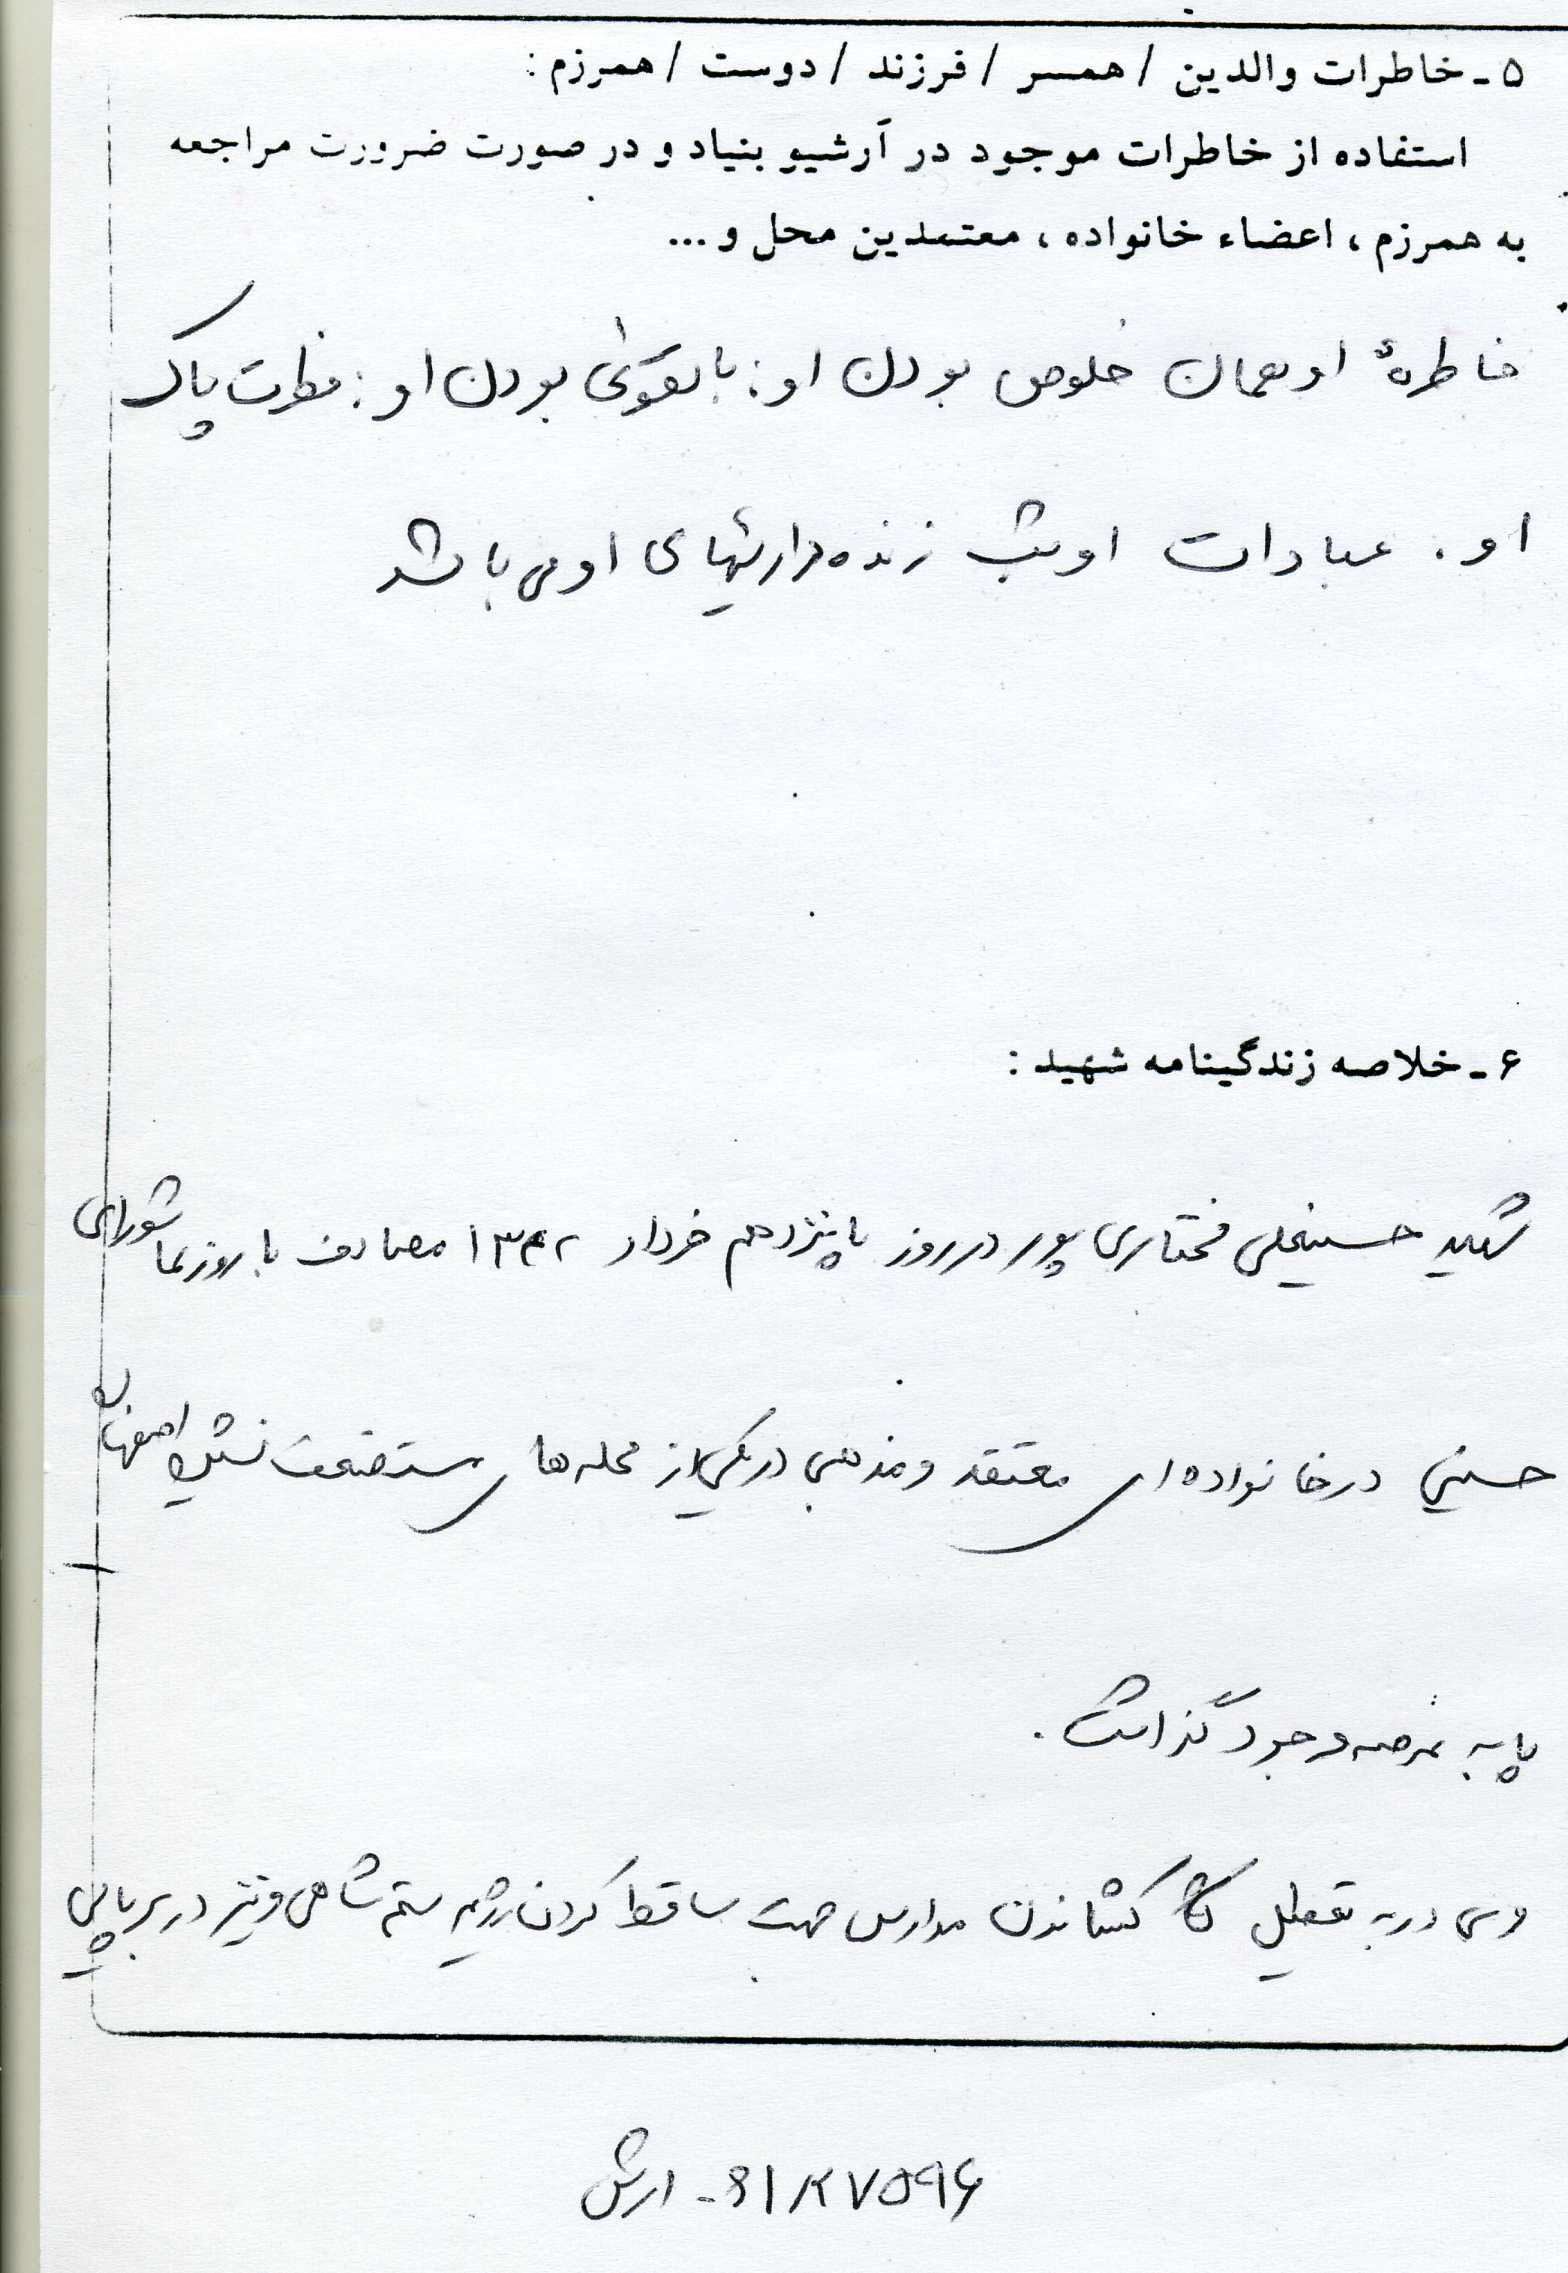 ۵ - خاطرات والدین / همسر / فرزند / دوست / همرزم :
استفاده از خاطرات موجود در آرشیو بنیاد و در صورت ضرورت مراجعه
به همرزم ، اعضاء خانواده ، معتمدین محل و ...
خاطرهٔ او همان خلوص بودن او : با تقوی بودن او : فطرت پاک
او . عبادات او شب زنده داریهای او می باشد
۶ - خلاصه زندگینامه شهید :
شهید حسینعلی مختاری پور در روز پانزدهم خرداد ۱۳۴۲ مصادف با روز عاشورای
حسینی در خانواده ای معتقد و مذهبی در یکی از محله های مستضعف نشین اصفهان
پا به عرصه وجود گذاشت .
وی در به تعطیل کشاندن مدارس جهت ساقط کردن رژیم ستم شاهی و نیز در برپایی
ارش